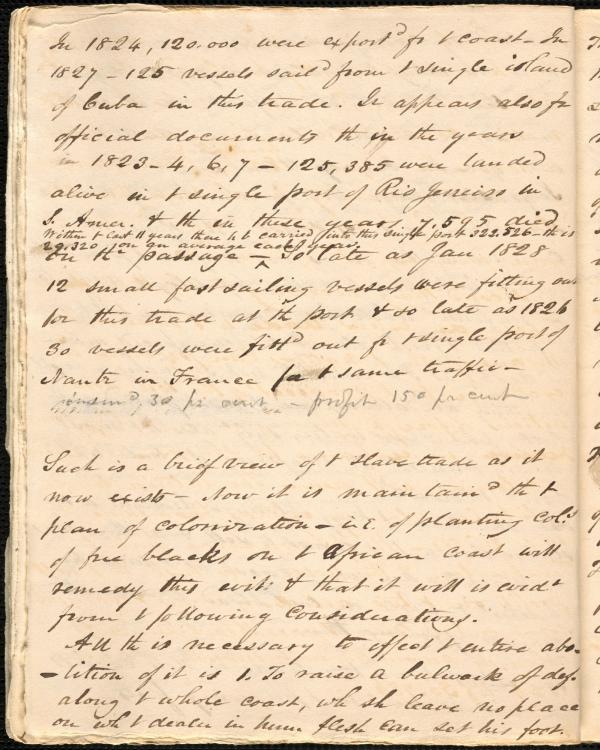 In 1824, 120.000 were exportd fr t coast - In
1827 - 125 vessels saild from t single island
of Cuba in this trade. It appears also fr
official documents th in the years
in 1823 - 4, 6, 7 - 125,385 were landed
alive in t single port of Rio Jeneiro in
S. Amer. & th in these years, 7,595 died
Within t last 11 years there h b carried into this single port 322.526 - th is
29.320 on an average each year.
on the passage - So late as Jan 1828
12 small fast sailing vessels were fitting out
for this trade at th port & so late as 1826
30 vessels were fittd out fr t single port of
Nantz in France for t same traffic -
30 pr cent - profit 150 pr cent
Such is a brief view of t slave trade as it
now exists - Now it is maintaind th t
plan of colonization - i.e. of planting cols
of free blacks on t African coast will
remedy this evil & that it will is evidt
from t following considerations.
All th is necessary to effect t entire abo-
-lition of it is 1. To raise a bulwark of def.
along t whole coast, wh sh leave no place
on wh t dealer in hum flesh can set his foot.